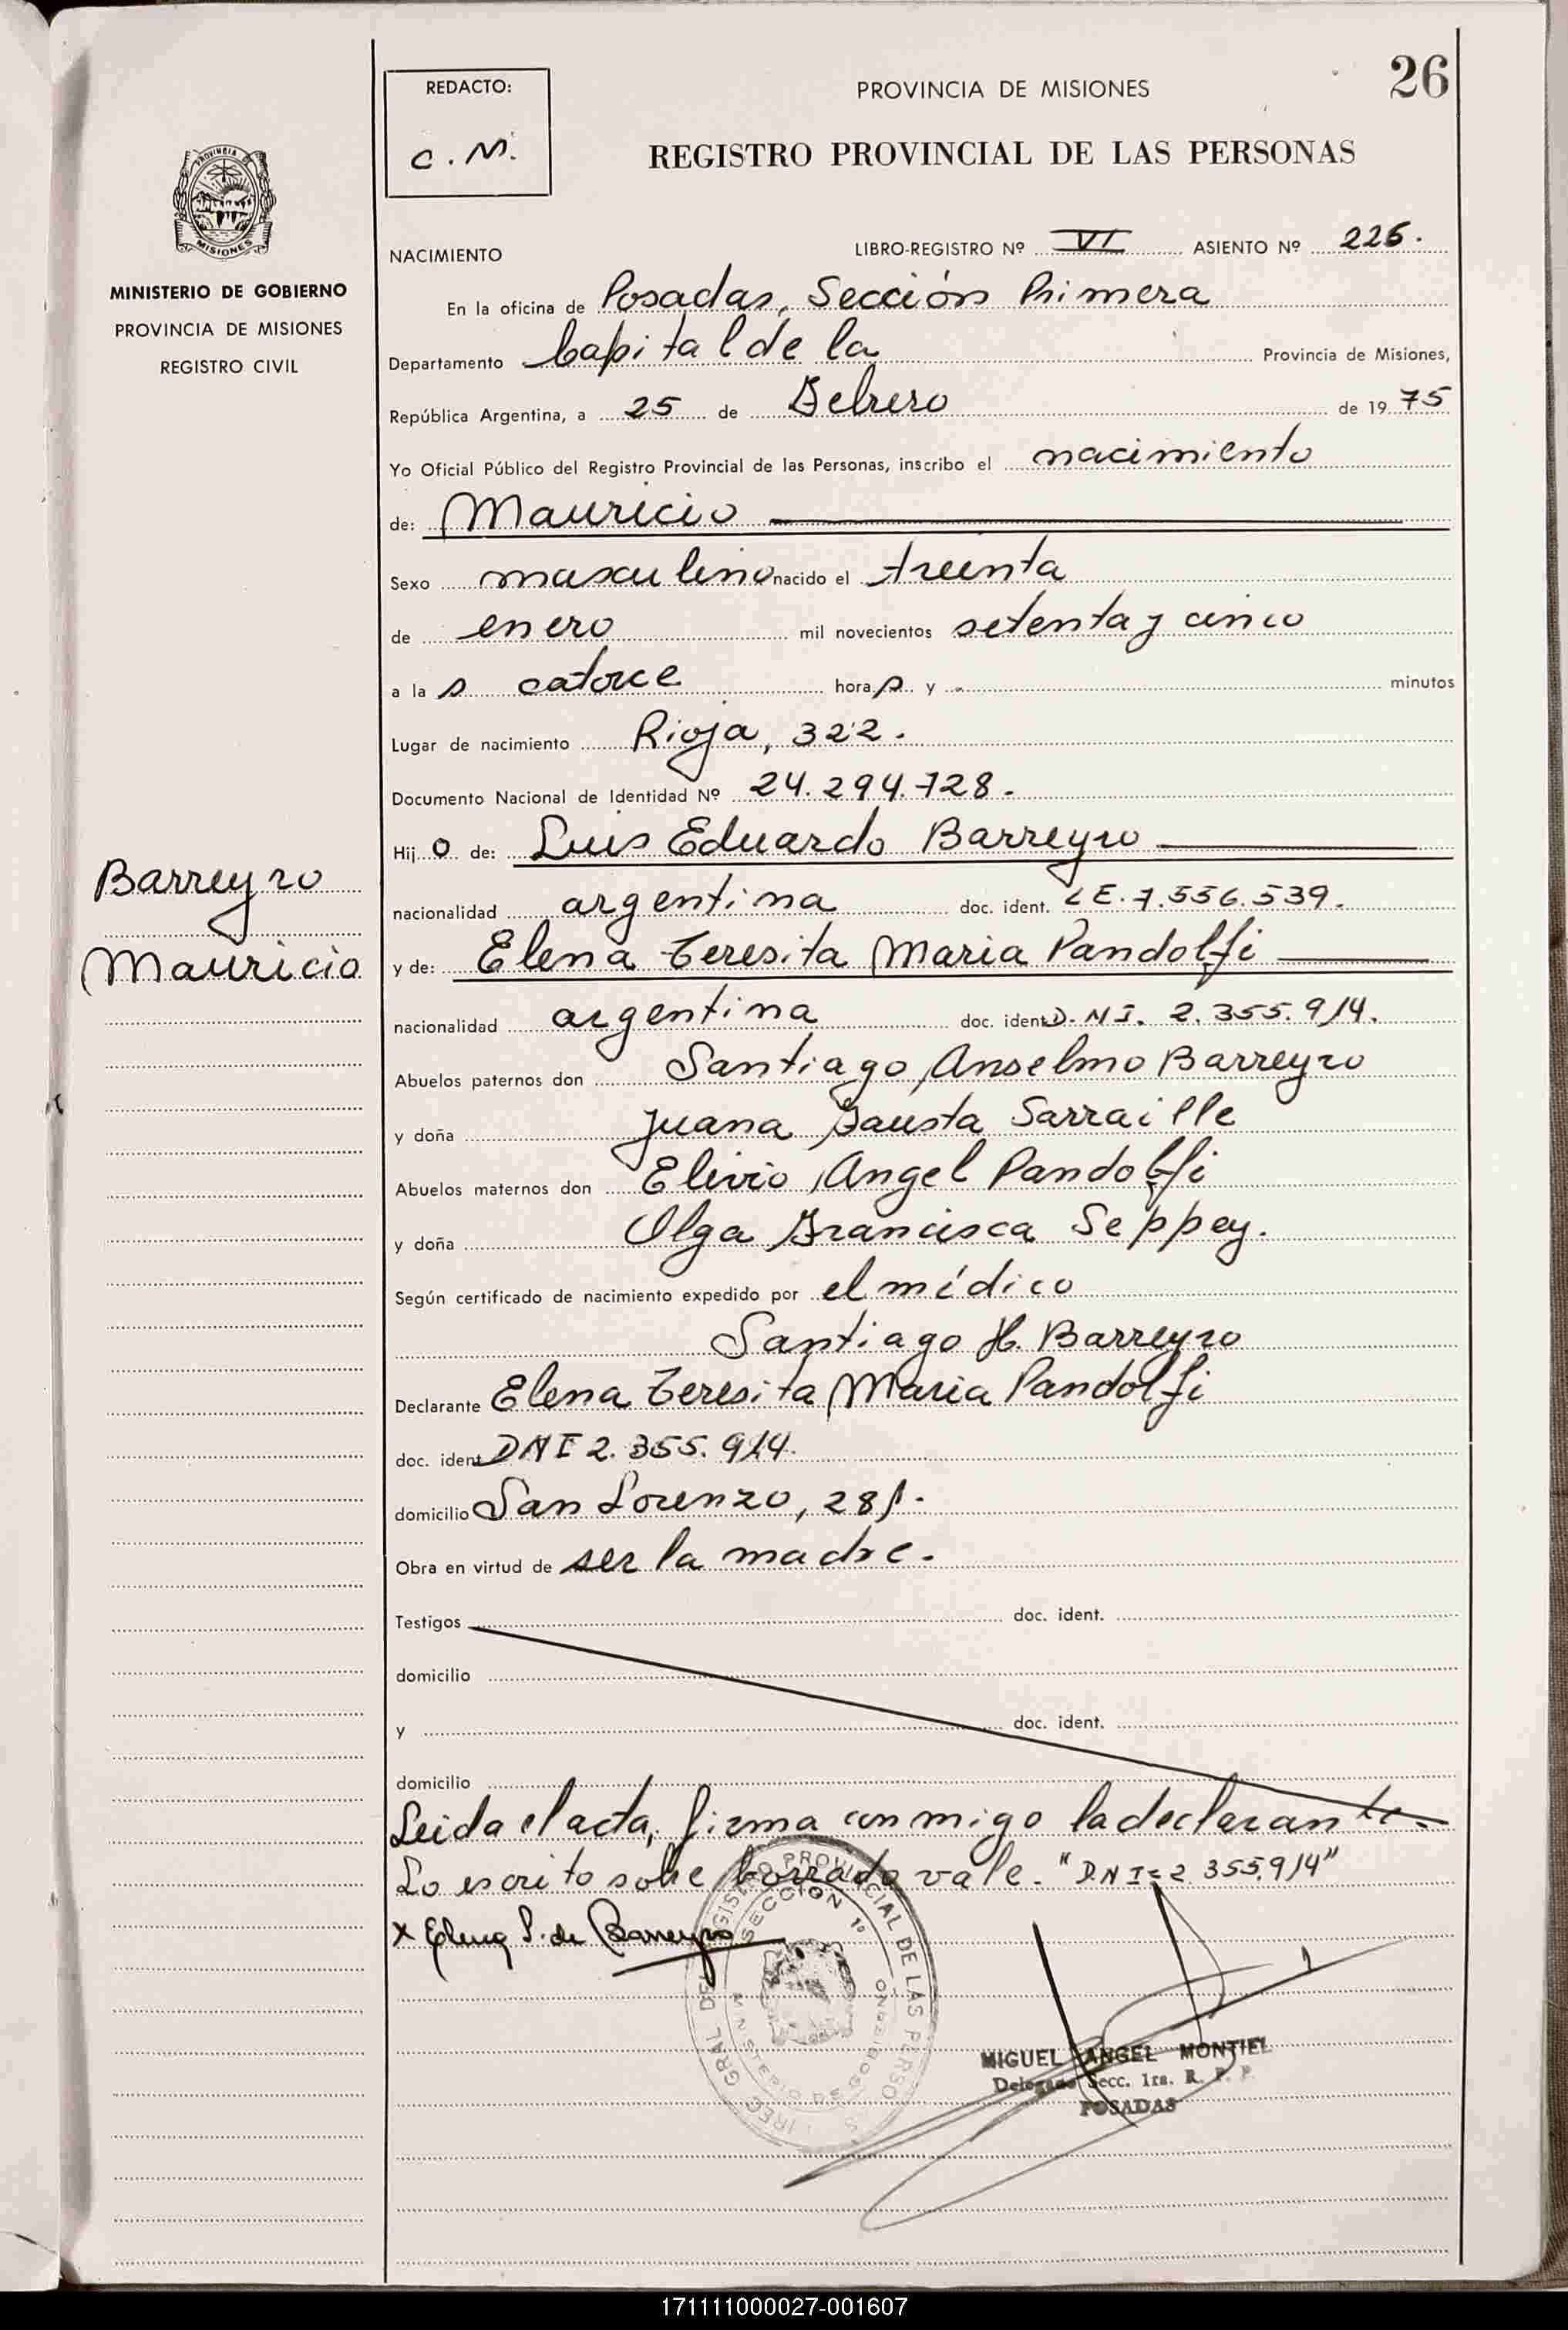 26
REDACTO:
C. M.
PROVINCIA DE MISIONES
REGISTRO PROVINCIAL DE LAS PERSONAS
PROVINCIA DE
MISIONES
MINISTERIO DE GOBIERNO
PROVINCIA DE MISIONES
REGISTRO CIVIL
NACIMIENTO LIBRO-REGISTRO Nº VI ASIENTO Nº 226.
En la oficina de Posadas, Sección Primera
Departamento Capital de la Provincia de Misiones,
República Argentina, a 25 de Febrero de 1975
Yo Oficial Público del Registro Provincial de las Personas, inscribo el nacimiento
de: Mauricio
Sexo masculino nacido el treinta
de enero mil novecientos setenta y cinco
a las catorce horas y - minutos
Lugar de nacimiento Rioja, 322.
Documento Nacional de Identidad Nº 24.294.728.
Hijo de: Luis Eduardo Barreyro
Barreyro
Mauricio
nacionalidad argentina doc. ident. LE. 7.556.539.
y de: Elena Teresita Maria Pandolfi
nacionalidad argentina doc. ident. D.N.I. 2.355.914.
Abuelos paternos don Santiago Anselmo Barreyro
y doña Juana Fausta Sarraille
Abuelos maternos don Elivio Angel Pandolfi
y doña Olga Francisca Seppey.
Según certificado de nacimiento expedido por el médico
Santiago H. Barreyro
Declarante Elena Teresita Maria Pandolfi
doc. ident. DNI 2.355.914.
domicilio San Lorenzo, 281.
Obra en virtud de ser la madre.
Testigos doc. ident.
domicilio
y doc. ident.
domicilio
Leida el acta, firma conmigo la declarante-
Lo escrito sobre borrado vale. "DNI=2.355.914"
x Elena P. de Barreyro
DIREC. GRAL. DEL REGISTRO PROVINCIAL DE LAS PERSONAS
SECCION 1º
MINISTERIO DE GOBIERNO
MIGUEL ANGEL MONTIEL
Delegado Secc. 1ra. R. P. P.
POSADAS
171111000027-001607